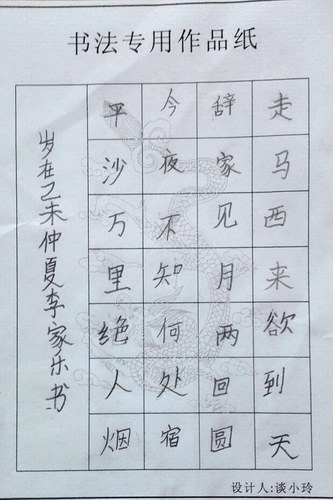 书法专用作品纸
走马西来欲到天
辞家见月两回圆
今夜不知何处宿
平沙万里绝人烟
岁在乙未仲夏李家乐书
设计人:谈小玲